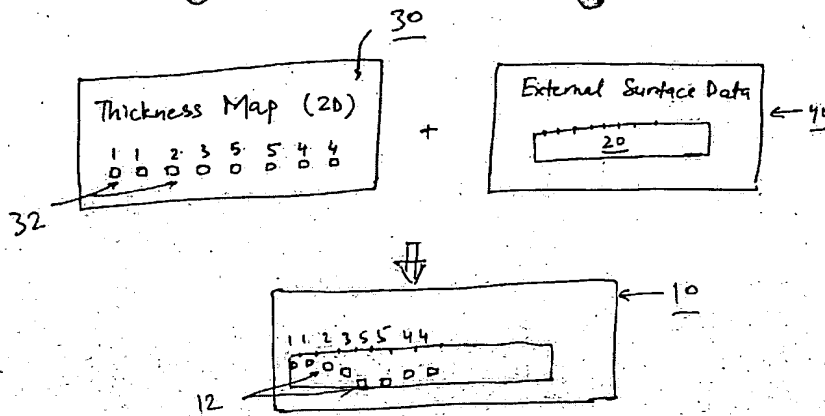 30
Thickness Map (2D)
1 1 2 3 5 5 4 4
32
+
External Surface Data
20
40
10
1 1 2 3 5 5 4 4
12